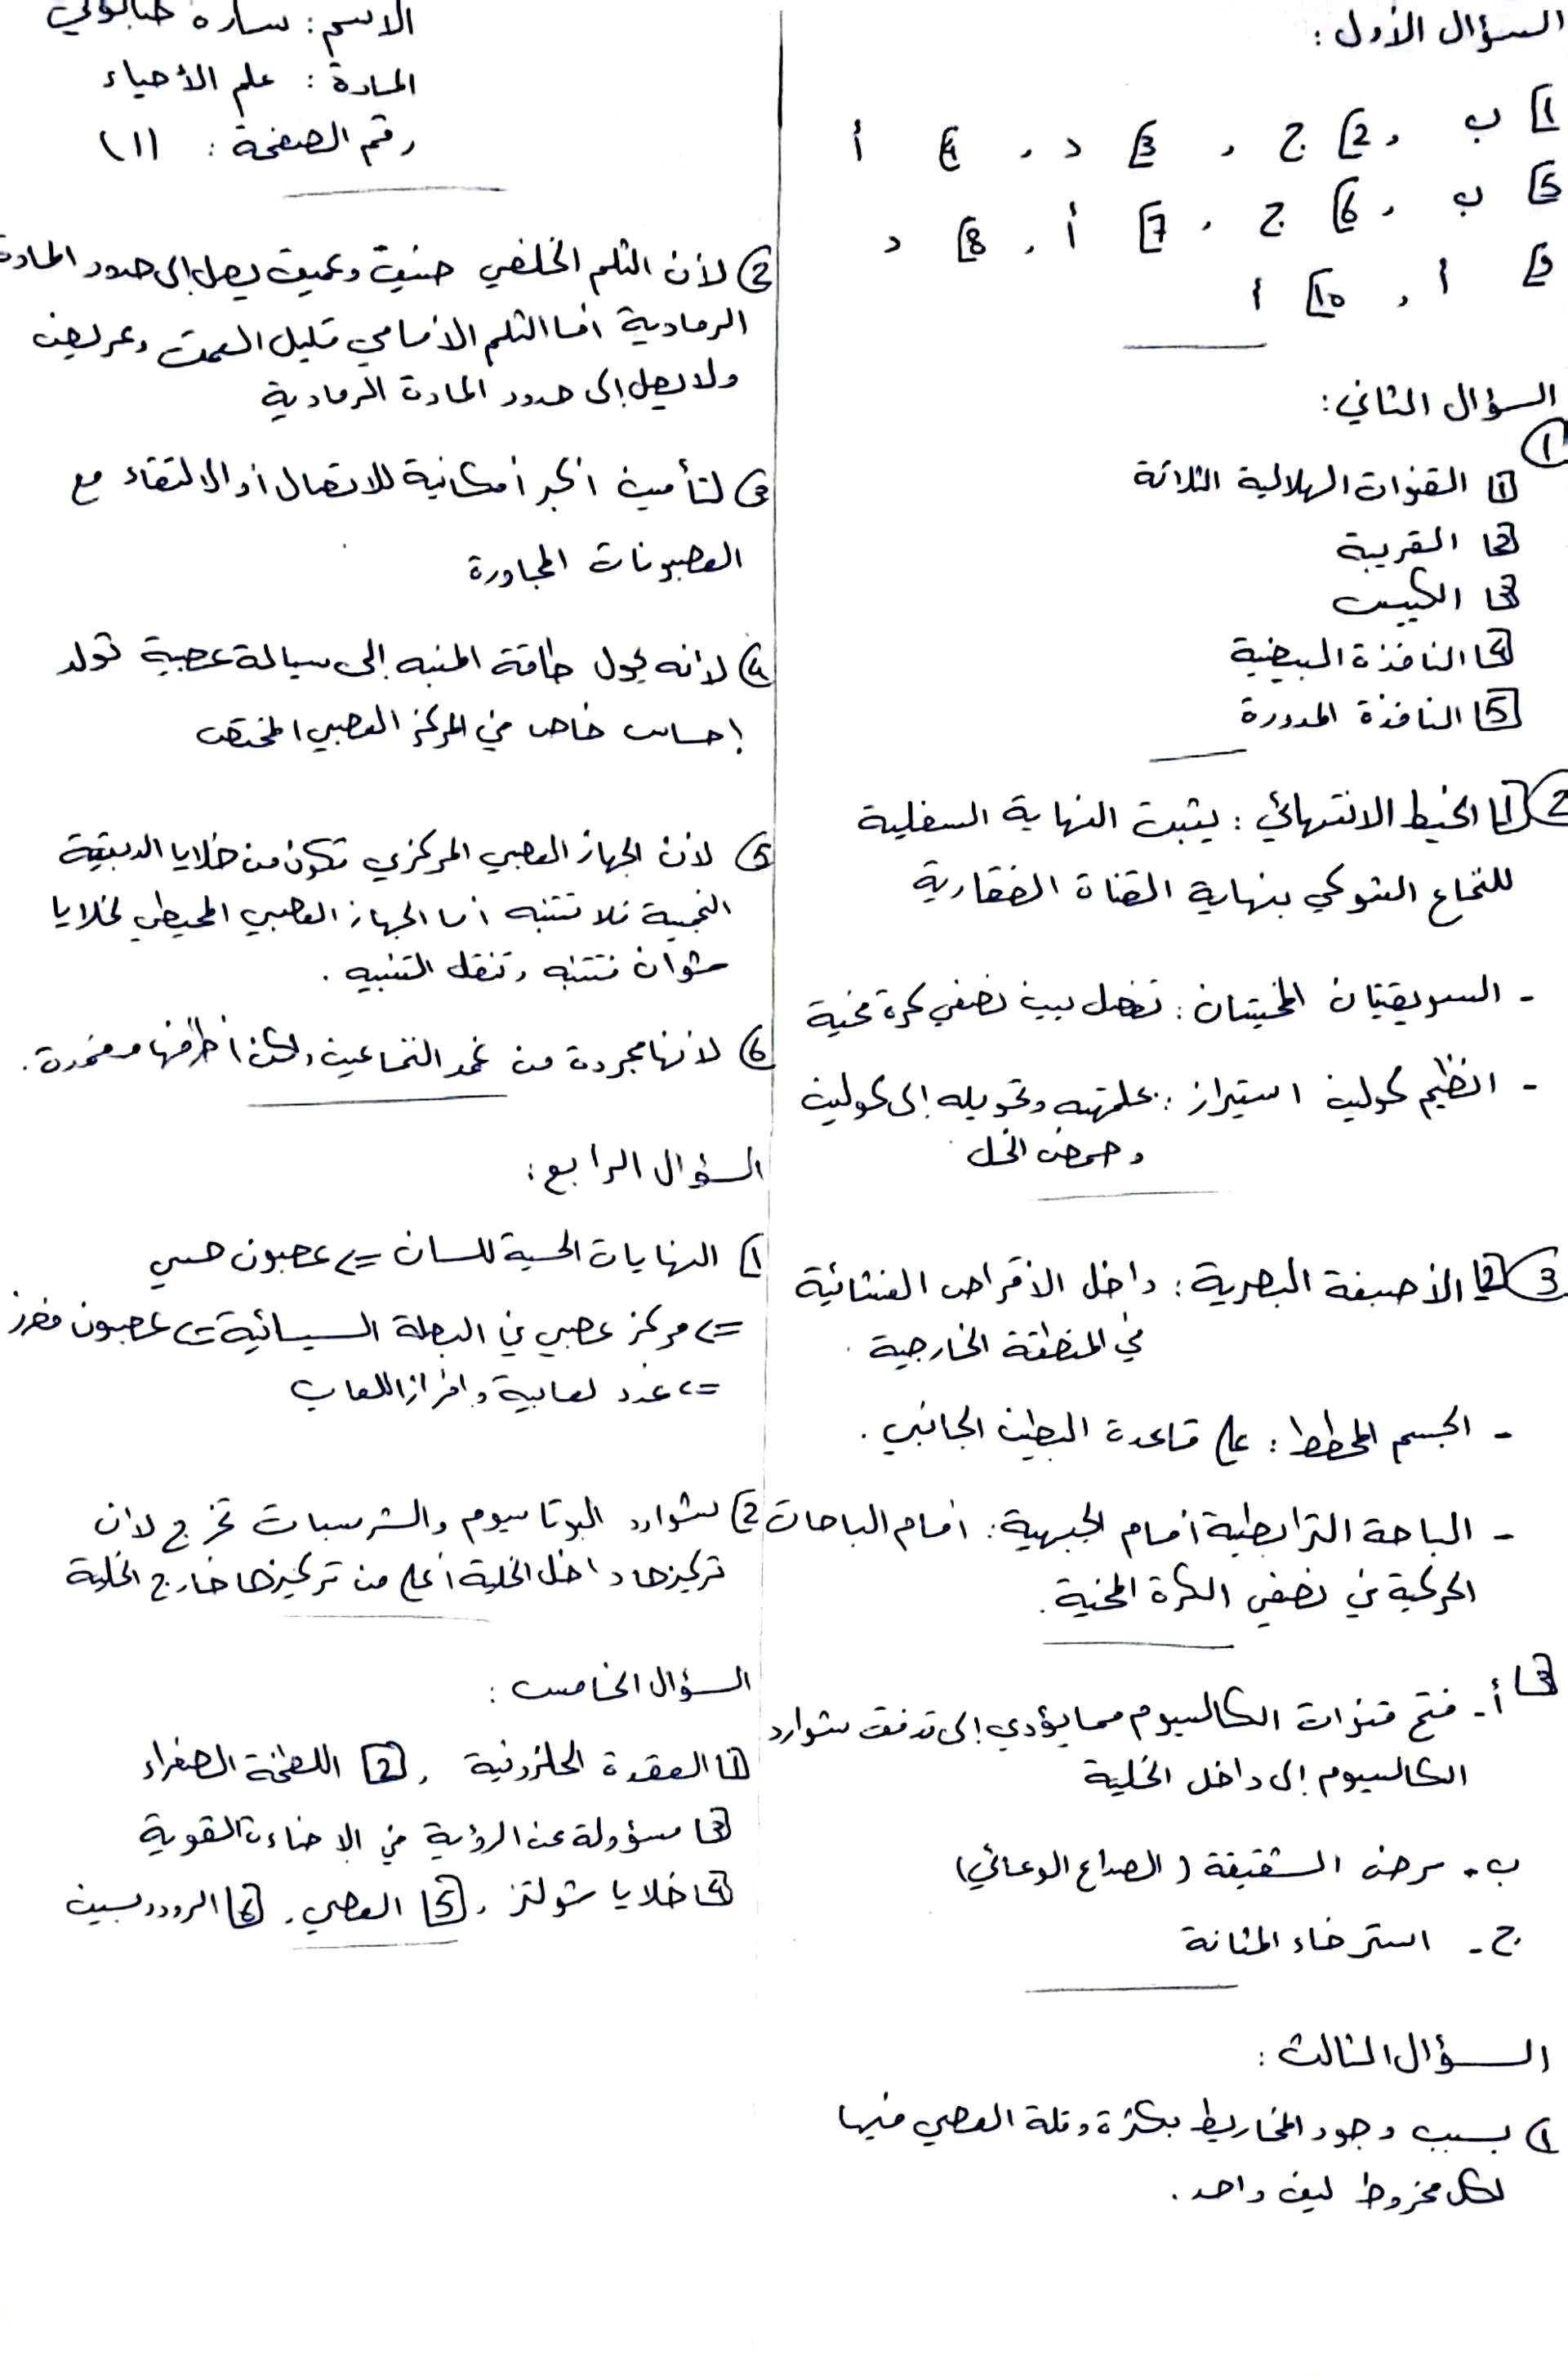 السؤال الأول :
1] ب ، 2] ج ، 3] د ، 4] أ
5] ب ، 6] ج ، 7] أ ، 8] د
9] أ ، 10] أ
السؤال الثاني :
①
1] القنوات الهلالية الثلاثة
2] القريبة
3] الكييس
4] النافذة البيضية
5] النافذة المدورة
② 1] الخيط الانتهائي : يثبت النهاية السفلية
للنخاع الشوكي بنهاية القناة الفقارية
- السويقتان المخيتان : تفصل بين نصفي كرة مخية
- انظيم كولين استيراز : حلمهته وتحويله إلى كولين
وحمض الخل
③ 2] الأصبغة البصرية : داخل الأقراص الغشائية
في المنطقة الخارجية
- الجسم المخطط : على قاعدة البطين الجانبي .
- الباحة الترابطية أمام الجبهية : أمام الباحات
الحركية في نصفي الكرة المخية .
3] أ - فتح قنوات الكالسيوم مما يؤدي إلى تدفق شوارد
الكالسيوم إلى داخل الخلية
ب - مرض الشقيقة ( الصداع الوعائي )
ج - استرخاء المثانة
السؤال الثالث :
1) بسبب وجود المخاريط بكثرة وقلة العصي فيها
لكل مخروط ليف واحد .
الاسم : ساره
المادة : علم الأحياء
رقم الصفحة : (1)
2) لأن الثلم الخلفي ضيق وعميق يصل إلى حدود المادة
الرمادية أما الثلم الأمامي قليل العمق وعريض
ولا يصل إلى حدود المادة الرمادية
3) لتأمين أكبر أمكانية للاتصال أو الالتقاء مع
العصبونات المجاورة
4) لانه يحول طاقة المنبه إلى سيالة عصبية تولد
إحساس خاص في المركز العصبي المختص
5) لأن الجهاز العصبي المركزي تتكون من خلايا الدبقية
النجمية فلا تتنبه أما الجهاز العصبي المحيطي لخلايا
شوان فتتنبه وتنقل التنبيه .
6) لانها مجردة من غمد النخاعين ولكن أطرافها مغمدة .
السؤال الرابع :
1] النهايات الحسية للسان => عصبون حسي
=> مركز عصبي في البصلة السيسائية => عصبون مفرز
=> غدد لعابية وإفراز اللعاب
2] شوارد البوتاسيوم والشرسبات تخرج لأن
تركيزها داخل الخلية أعلى من تركيزها خارج الخلية
السؤال الخامس :
1] العقدة الحلزونية ، 2] اللطخة الصفراء
3] مسؤولة عن الرؤية في الاضاءة القوية
4] خلايا شولتز ، 5] العصي ، 6] الرودوبسين